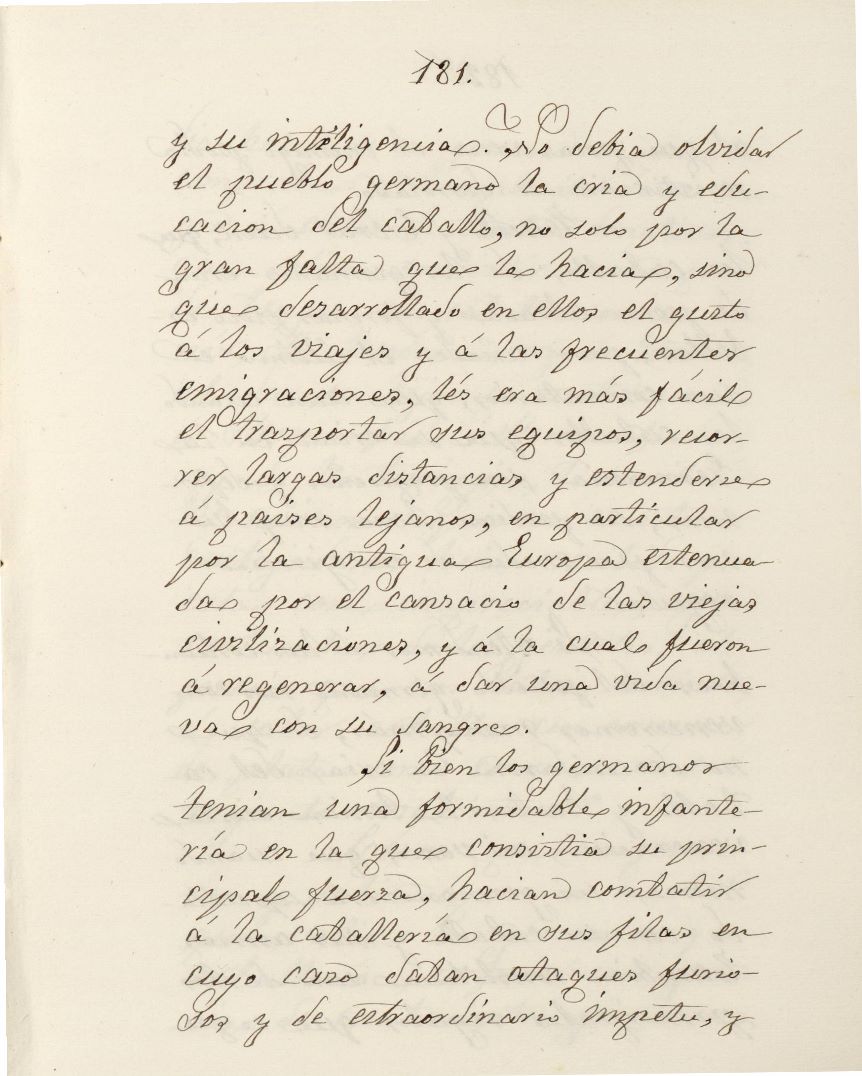 181.
y su inteligencia. No debia olvidar
el pueblo germano la cria y edu-
cacion del caballo, no solo por la
gran falta que le hacia, sino
que desarrollado en ellos el gusto
á los viajes y á las frecuentes
emigraciones, lés era más fácil
el trasportar sus equipos, recor-
rer largas distancias y estenderse
á paises lejanos, en particular
por la antigua Europa estenua-
da por el cansacio de las viejas
civilizaciones, y á la cual fueron
á regenerar, á dar una vida nue-
va con su sangre.
Si bien los germanos
tenian una formidable infante-
ría en la que consistia su prin-
cipal fuerza, hacian combatir
á la caballería en sus filas en
cuyo caso daban ataques furio-
sos y de estraordinario ímpetu, y